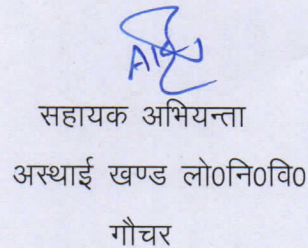 सहायक अभियन्ता
अस्थाई खण्ड लो0नि0वि0
गौचर